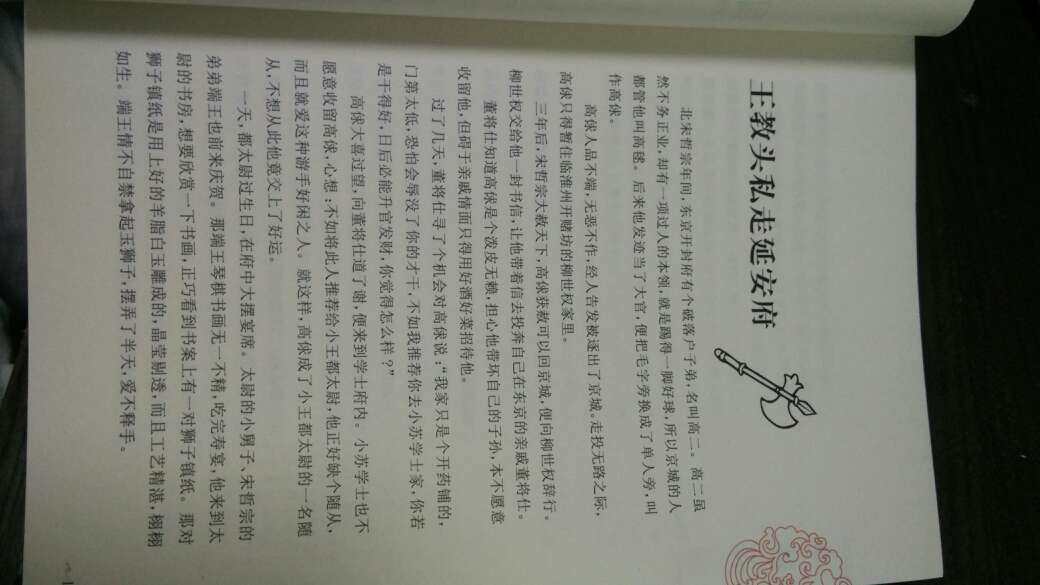 王教头私走延安府
北宋哲宗年间，东京开封府有个破落户子弟，名叫高二。高二虽
然不务正业，却有一项过人的本领，就是踢得一脚好球，所以京城的人
都管他叫高毬。后来他发迹当了大官，便把毛字旁换成了单人旁，叫
作高俅。
高俅人品不端，无恶不作，经人告发被逐出了京城。走投无路之际，
高俅只得暂住临淮州开赌坊的柳世权家里。
三年后，宋哲宗大赦天下，高俅获赦可以回京城，便向柳世权辞行。
柳世权交给他一封书信，让他带着信去投奔自己在东京的亲戚董将仕。
董将仕知道高俅是个泼皮无赖，担心他带坏自己的子孙，本不愿意
收留他，但碍于亲戚情面只得用好酒好菜招待他。
过了几天，董将仕寻了个机会对高俅说：“我家只是个开药铺的，
门第太低，恐怕会辱没了你的才干，不如我推荐你去小苏学士家，你若
是干得好，日后必能升官发财，你觉得怎么样？”
高俅大喜过望，向董将仕道了谢，便来到学士府内。小苏学士也不
愿意收留高俅，心想：不如将此人推荐给小王都太尉，他正好缺个随从，
而且就爱这种游手好闲之人。就这样，高俅成了小王都太尉的一名随
从，不想从此他竟交上了好运。
一天，都太尉过生日，在府中大摆宴席。太尉的小舅子、宋哲宗的
弟弟端王也前来庆贺。那端王琴棋书画无一不精，吃完寿宴，他来到太
尉的书房，想要欣赏一下书画，正巧看到书案上有一对狮子镇纸。那对
狮子镇纸是用上好的羊脂白玉雕成的，晶莹剔透，而且工艺精湛，栩栩
如生。端王情不自禁拿起玉狮子，摆弄了半天，爱不释手。